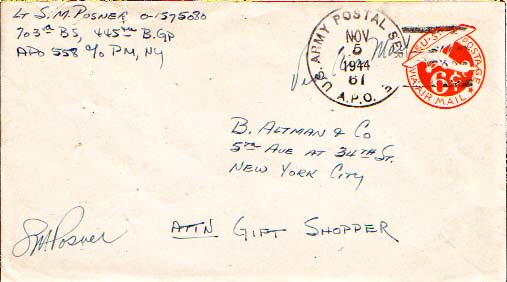 LT S.M. POSNER O-1575080
703rd BS, 445th B.GP
APO 558 c/o PM, NY
U.S. ARMY POSTAL SVC
NOV
5
1944
61
A.P.O.
Via Air Mail
U.S. POSTAGE
6c
VIA AIR MAIL
B. ALTMAN & CO
5TH AVE AT 34TH ST.
NEW YORK CITY
ATTN GIFT SHOPPER
SM Posner